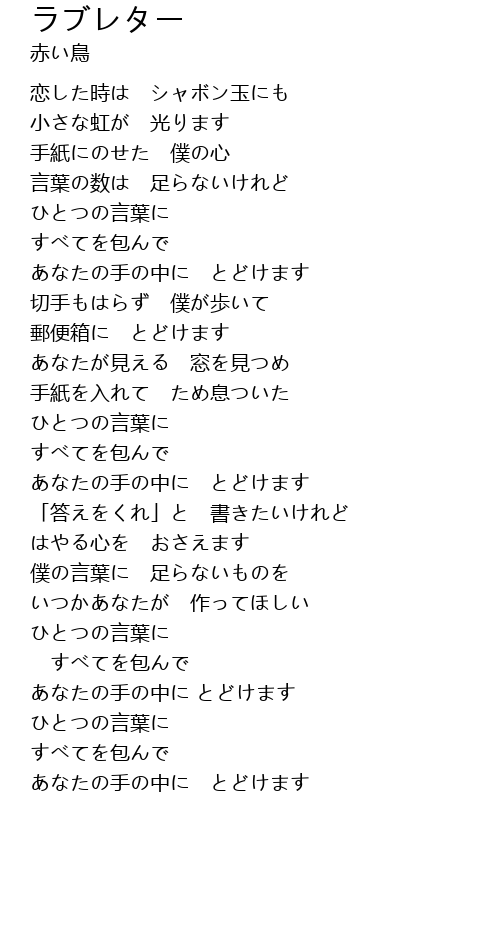 ラブレター
赤い鳥
恋した時は　シャボン玉にも
小さな虹が　光ります
手紙にのせた　僕の心
言葉の数は　足らないけれど
ひとつの言葉に
すべてを包んで
あなたの手の中に　とどけます
切手もはらず　僕が歩いて
郵便箱に　とどけます
あなたが見える　窓を見つめ
手紙を入れて　ため息ついた
ひとつの言葉に
すべてを包んで
あなたの手の中に　とどけます
「答えをくれ」と　書きたいけれど
はやる心を　おさえます
僕の言葉に　足らないものを
いつかあなたが　作ってほしい
ひとつの言葉に
　すべてを包んで
あなたの手の中に とどけます
ひとつの言葉に
すべてを包んで
あなたの手の中に　とどけます